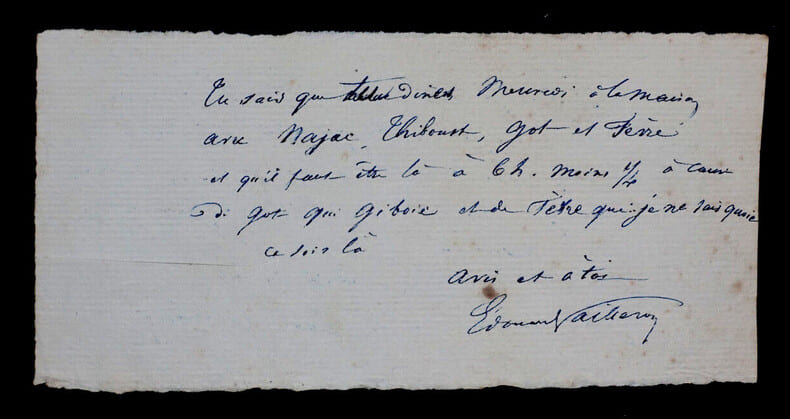 Tu sais que tu dines Mercredi à la maison
avec Najac, Thiboust, Got et Fèvre
et qu'il faut être là à 6 h. moins 1/4 à cause
de Got qui giboie et de Fèvre que je ne sais quoie
ce soir là
Avis et à toi
Edouard Pailleron